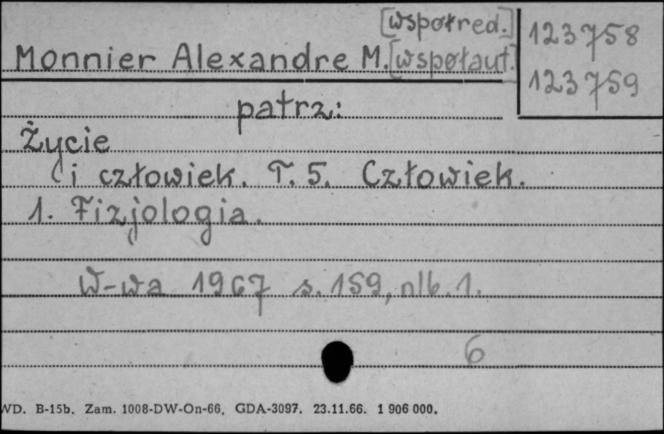 [współred.]
Monnier Alexandre M. [współaut.]
123758
123759
patrz:
Życie
i człowiek. T. 5. Człowiek.
1. Fizjologia.
W-wa 1967 s. 159, nlb. 1.
6
WD. B-15b. Zam. 1008-DW-On-66. GDA-3097. 23.11.66. 1 906 000.